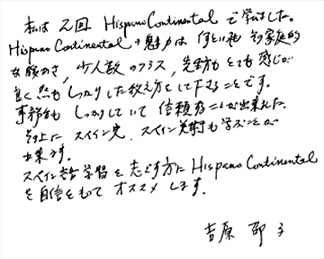 私は2回 Hispano Continental で学びました。
Hispano Continental の魅力は 何といっても その家庭的
な暖かさ、少人数のクラス、先生方もとても感じが
良く 熱も しっかりした教え方をして下さることです。
事務も しっかりしていて 信頼することが出来ました。
その上に スペイン史、スペイン美術も 学ぶことが
出来ます。
スペイン語学習を志ざす方に Hispano Continental
を自信をもって オススメ します。
吉原 子